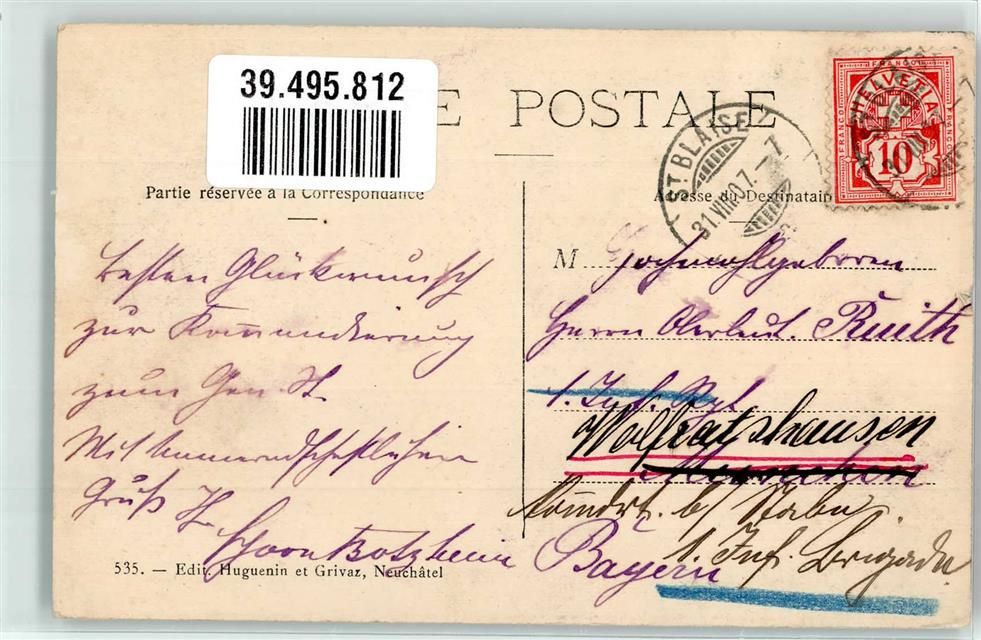 39.495.812
E POSTALE
ST. BLAISE
31.VIII.07.–7
HELVETIA
FRANCO
FRANCO
FRANCO
10
Partie réservée à la Correspondance
Adresse du Destinataire
besten Glückwunsch
zur Kommandierung
zum Gen. St.
Mit kameradschaftlichem
Gruß
von Botzheim
M Hochwohlgeboren
Herrn Oberleut. Ruith
1. Inf. Rgt.
Wolfratshausen
München
Komdrt. b/ Stabe
1. Inf. Brigade
Bayern
535. — Edit. Huguenin et Grivaz, Neuchâtel